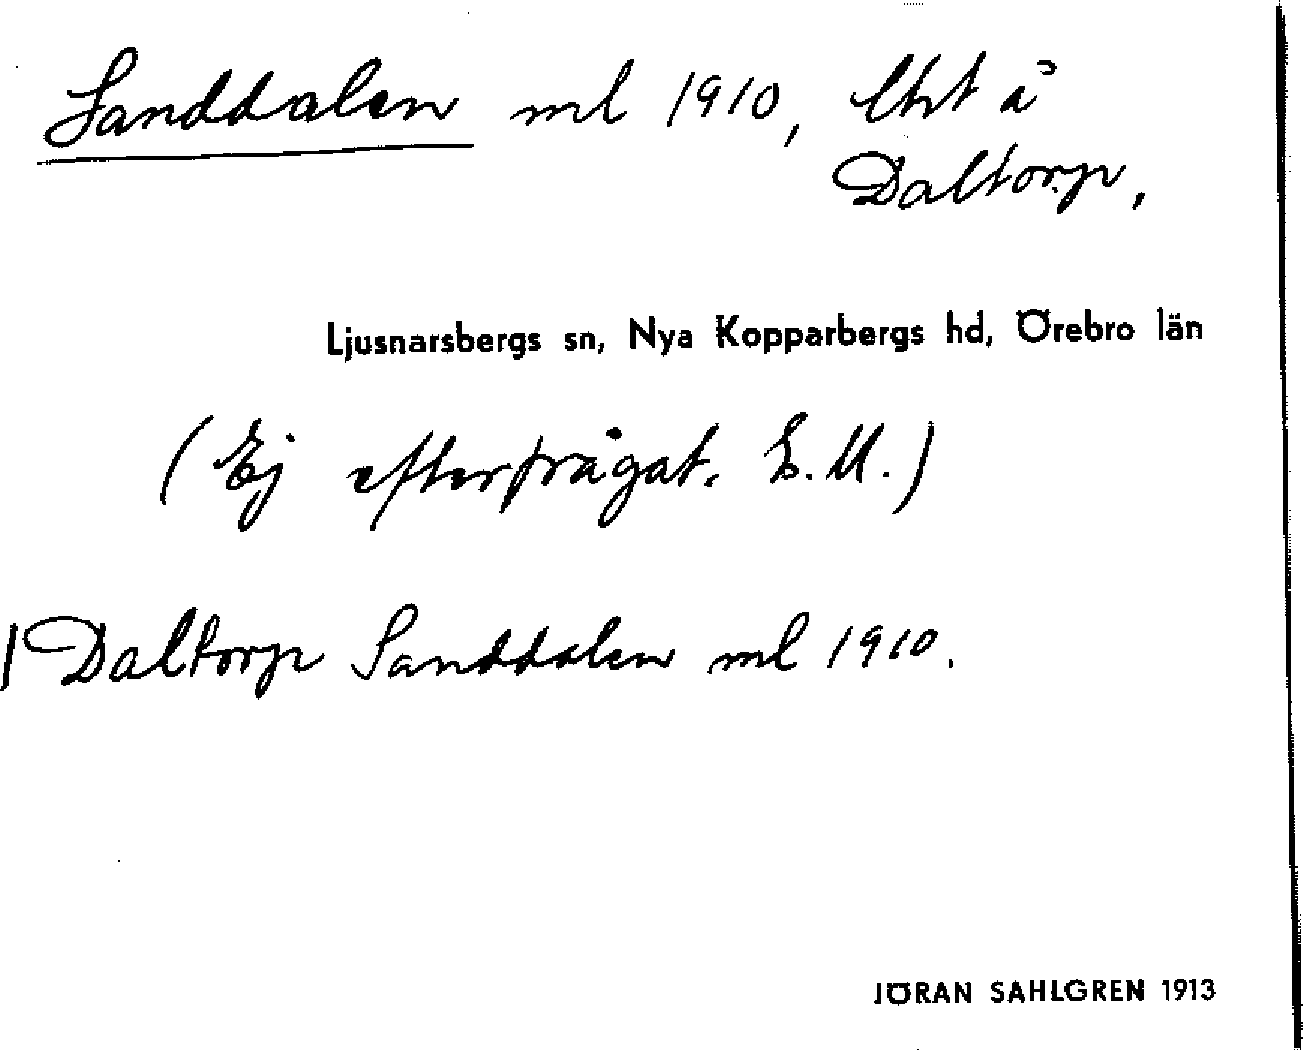 Sanddalen ml 1910, lht å
Daltorp,
Ljusnarsbergs sn, Nya Kopparbergs hd, Örebro län
(Ej efterfrågat. E. M.)
Daltorp Sanddalen ml 1910.
JÖRAN SAHLGREN 1913